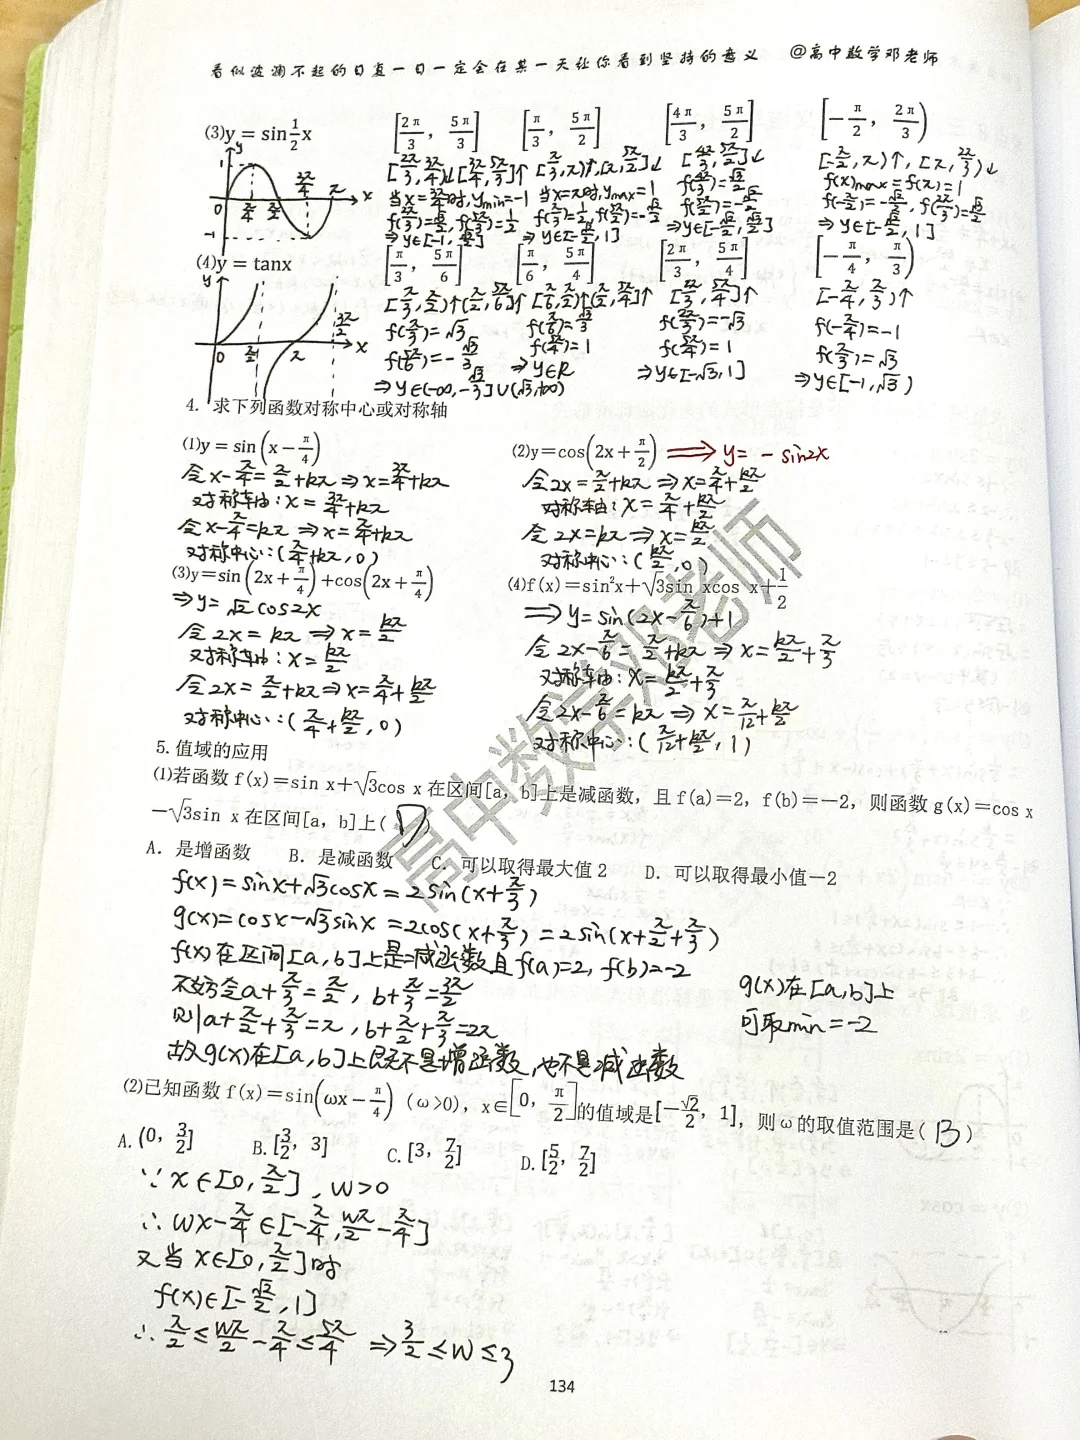 看似波澜不起的日复一日一定会在某一天让你看到坚持的意义 @高中数学邓老师
(3)y=sin½x [2π/3, 5π/3] [π/3, 5π/2] [4π/3, 5π/2] [-π/2, 2π/3)
[2π/3,3π/4)↓[3π/4,5π/3]↑ [π/3,π)↑,[π,5π/2]↓ [4π/3,5π/2]↓ [-π/2,π)↑,[π,2π/3)↓
当x=3π/4时,ymin=-1 当x=π时,ymax=1 f(4π/3)=√3/2 f(x)max=f(π)=1
f(2π/3)=√3/2,f(5π/3)=1/2 f(π/3)=1/2,f(5π/2)=-√2/2 f(5π/2)=-√2/2 f(-π/2)=-√2/2,f(2π/3)=√3/2
⇒y∈[-1,√3/2] ⇒y∈[-√2/2,1] ⇒y∈[-√2/2,√3/2] ⇒y∈[-√2/2,1]
1 0 π/4 π/2 3π/4 π x y -1
(4)y=tanx [π/3, 5π/6] [π/6, 5π/4] [2π/3, 5π/4] [-π/4, π/3)
[π/3,π/2)↑(π/2,5π/6]↑ [π/6,π/2)↑(π/2,5π/4]↑ [2π/3,5π/4]↑ [-π/4,π/3)↑
f(π/3)=√3 f(π/6)=√3/3 f(2π/3)=-√3 f(-π/4)=-1
f(5π/6)=-√3/3 f(5π/4)=1 f(5π/4)=1 f(π/3)=√3
⇒y∈(-∞,-√3/3]∪(√3,+∞) ⇒y∈R ⇒y∈[-√3,1] ⇒y∈[-1,√3)
y 0 π/2 π 3π/2 x
4. 求下列函数对称中心或对称轴
(1)y=sin(x-π/4)
令x-π/4=π/2+kπ⇒x=3π/4+kπ
对称轴:x=3π/4+kπ
令x-π/4=kπ⇒x=π/4+kπ
对称中心:(π/4+kπ,0)
(2)y=cos(2x+π/2) ⇒y=-sin2x
令2x=π/2+kπ⇒x=π/4+kπ/2
对称轴:x=π/4+kπ/2
令2x=kπ⇒x=kπ/2
对称中心:(kπ/2,0)
(3)y=sin(2x+π/4)+cos(2x+π/4)
⇒y=√2cos2x
令2x=kπ⇒x=kπ/2
对称轴:x=kπ/2
令2x=π/2+kπ⇒x=π/4+kπ/2
对称中心:(π/4+kπ/2,0)
(4)f(x)=sin²x+√3sin xcos x+1/2
⇒y=sin(2x-π/6)+1
令2x-π/6=π/2+kπ⇒x=kπ/2+π/3
对称轴:x=kπ/2+π/3
令2x-π/6=kπ⇒x=π/12+kπ/2
对称中心:(π/12+kπ/2,1)
高中数学邓老师
5.值域的应用
(1)若函数f(x)=sin x+√3cos x在区间[a，b]上是减函数，且f(a)=2，f(b)=-2，则函数g(x)=cos x
-√3sin x在区间[a，b]上( D )
A．是增函数 B．是减函数 C．可以取得最大值2 D．可以取得最小值-2
f(x)=sinx+√3cosx=2sin(x+π/3)
g(x)=cosx-√3sinx=2cos(x+π/3)=2sin(x+π/2+π/3)
f(x)在区间[a,b]上是减函数且f(a)=2,f(b)=-2
不妨令a+π/3=π/2,b+π/3=3π/2
则a+π/2+π/3=π,b+π/2+π/3=2π
故g(x)在[a,b]上既不是增函数,也不是减函数
g(x)在[a,b]上
可取min=-2
(2)已知函数f(x)=sin(ωx-π/4)(ω>0)，x∈[0，π/2]的值域是[-√2/2，1]，则ω的取值范围是( B )
A.(0，3/2] B.[3/2，3] C.[3，7/2] D.[5/2，7/2]
∵x∈[0,π/2],w>0
∴wx-π/4∈[-π/4,wπ/2-π/4]
又当x∈[0,π/2]时
f(x)∈[-√2/2,1]
∴π/2≤wπ/2-π/4≤5π/4⇒3/2≤w≤3
134